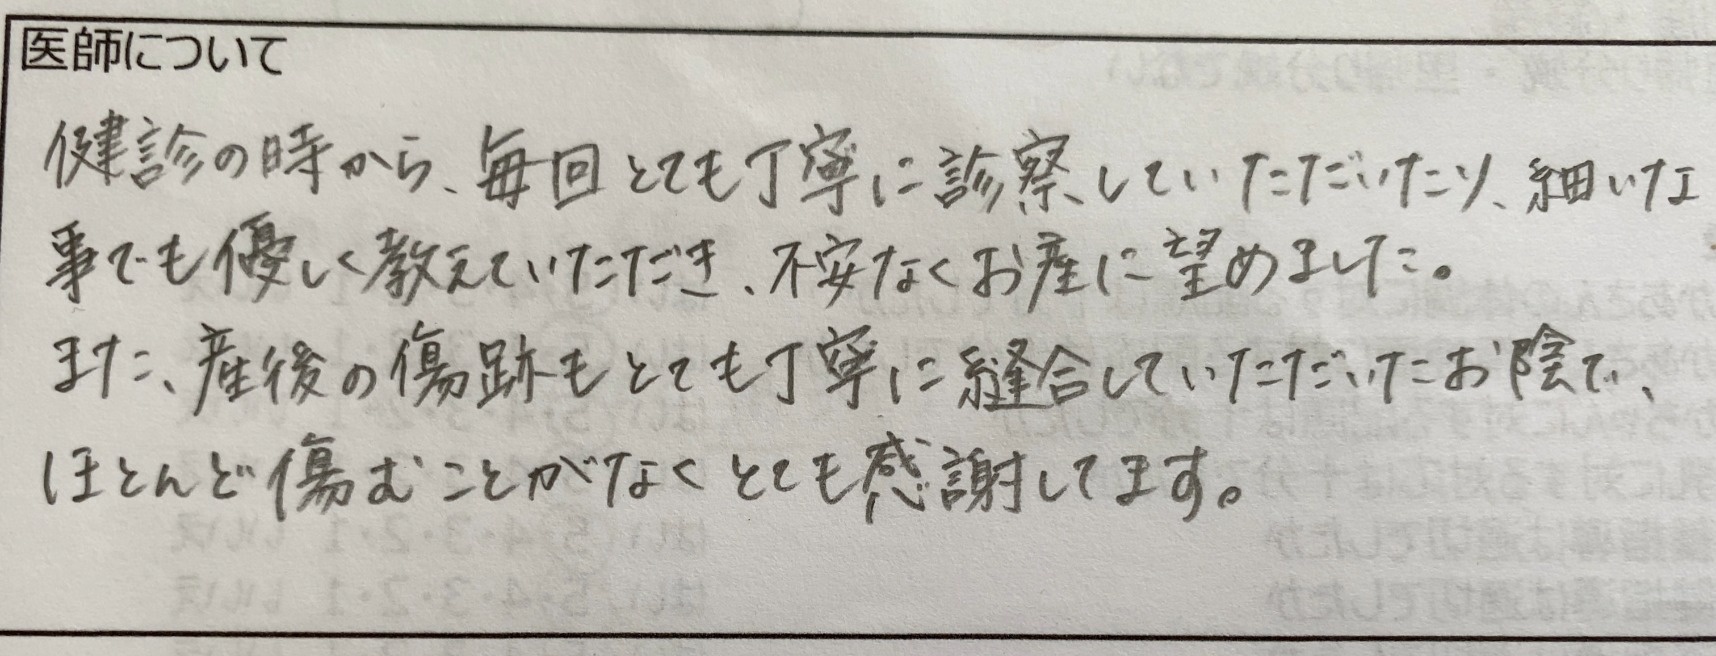 医師について
健診の時から、毎回とても丁寧に診察していただいたり、細いな
事でも優しく教えていただき、不安なくお産に望めました。
また、産後の傷跡もとても丁寧に縫合していただいたお陰で、
ほとんど傷むことがなくとても感謝してます。
はい 5・4・3・2・1 いいえ
はい 5・4・3・2・1 いいえ